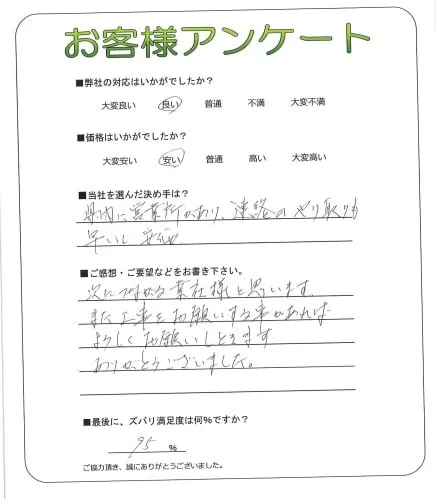 お客様アンケート
■弊社の対応はいかがでしたか？
大変良い 良い 普通 不満 大変不満
■価格はいかがでしたか？
大変安い 安い 普通 高い 大変高い
■当社を選んだ決め手は？
県内に営業所があり、連絡のやり取りも
早いし安価
■ご感想・ご要望などをお書き下さい。
次につながる業社様と思います。
また工事をお願いする事があれば
よろしくお願いしときます
ありがとうございました。
■最後に、ズバリ満足度は何%ですか？
95 %
ご協力頂き、誠にありがとうございました。